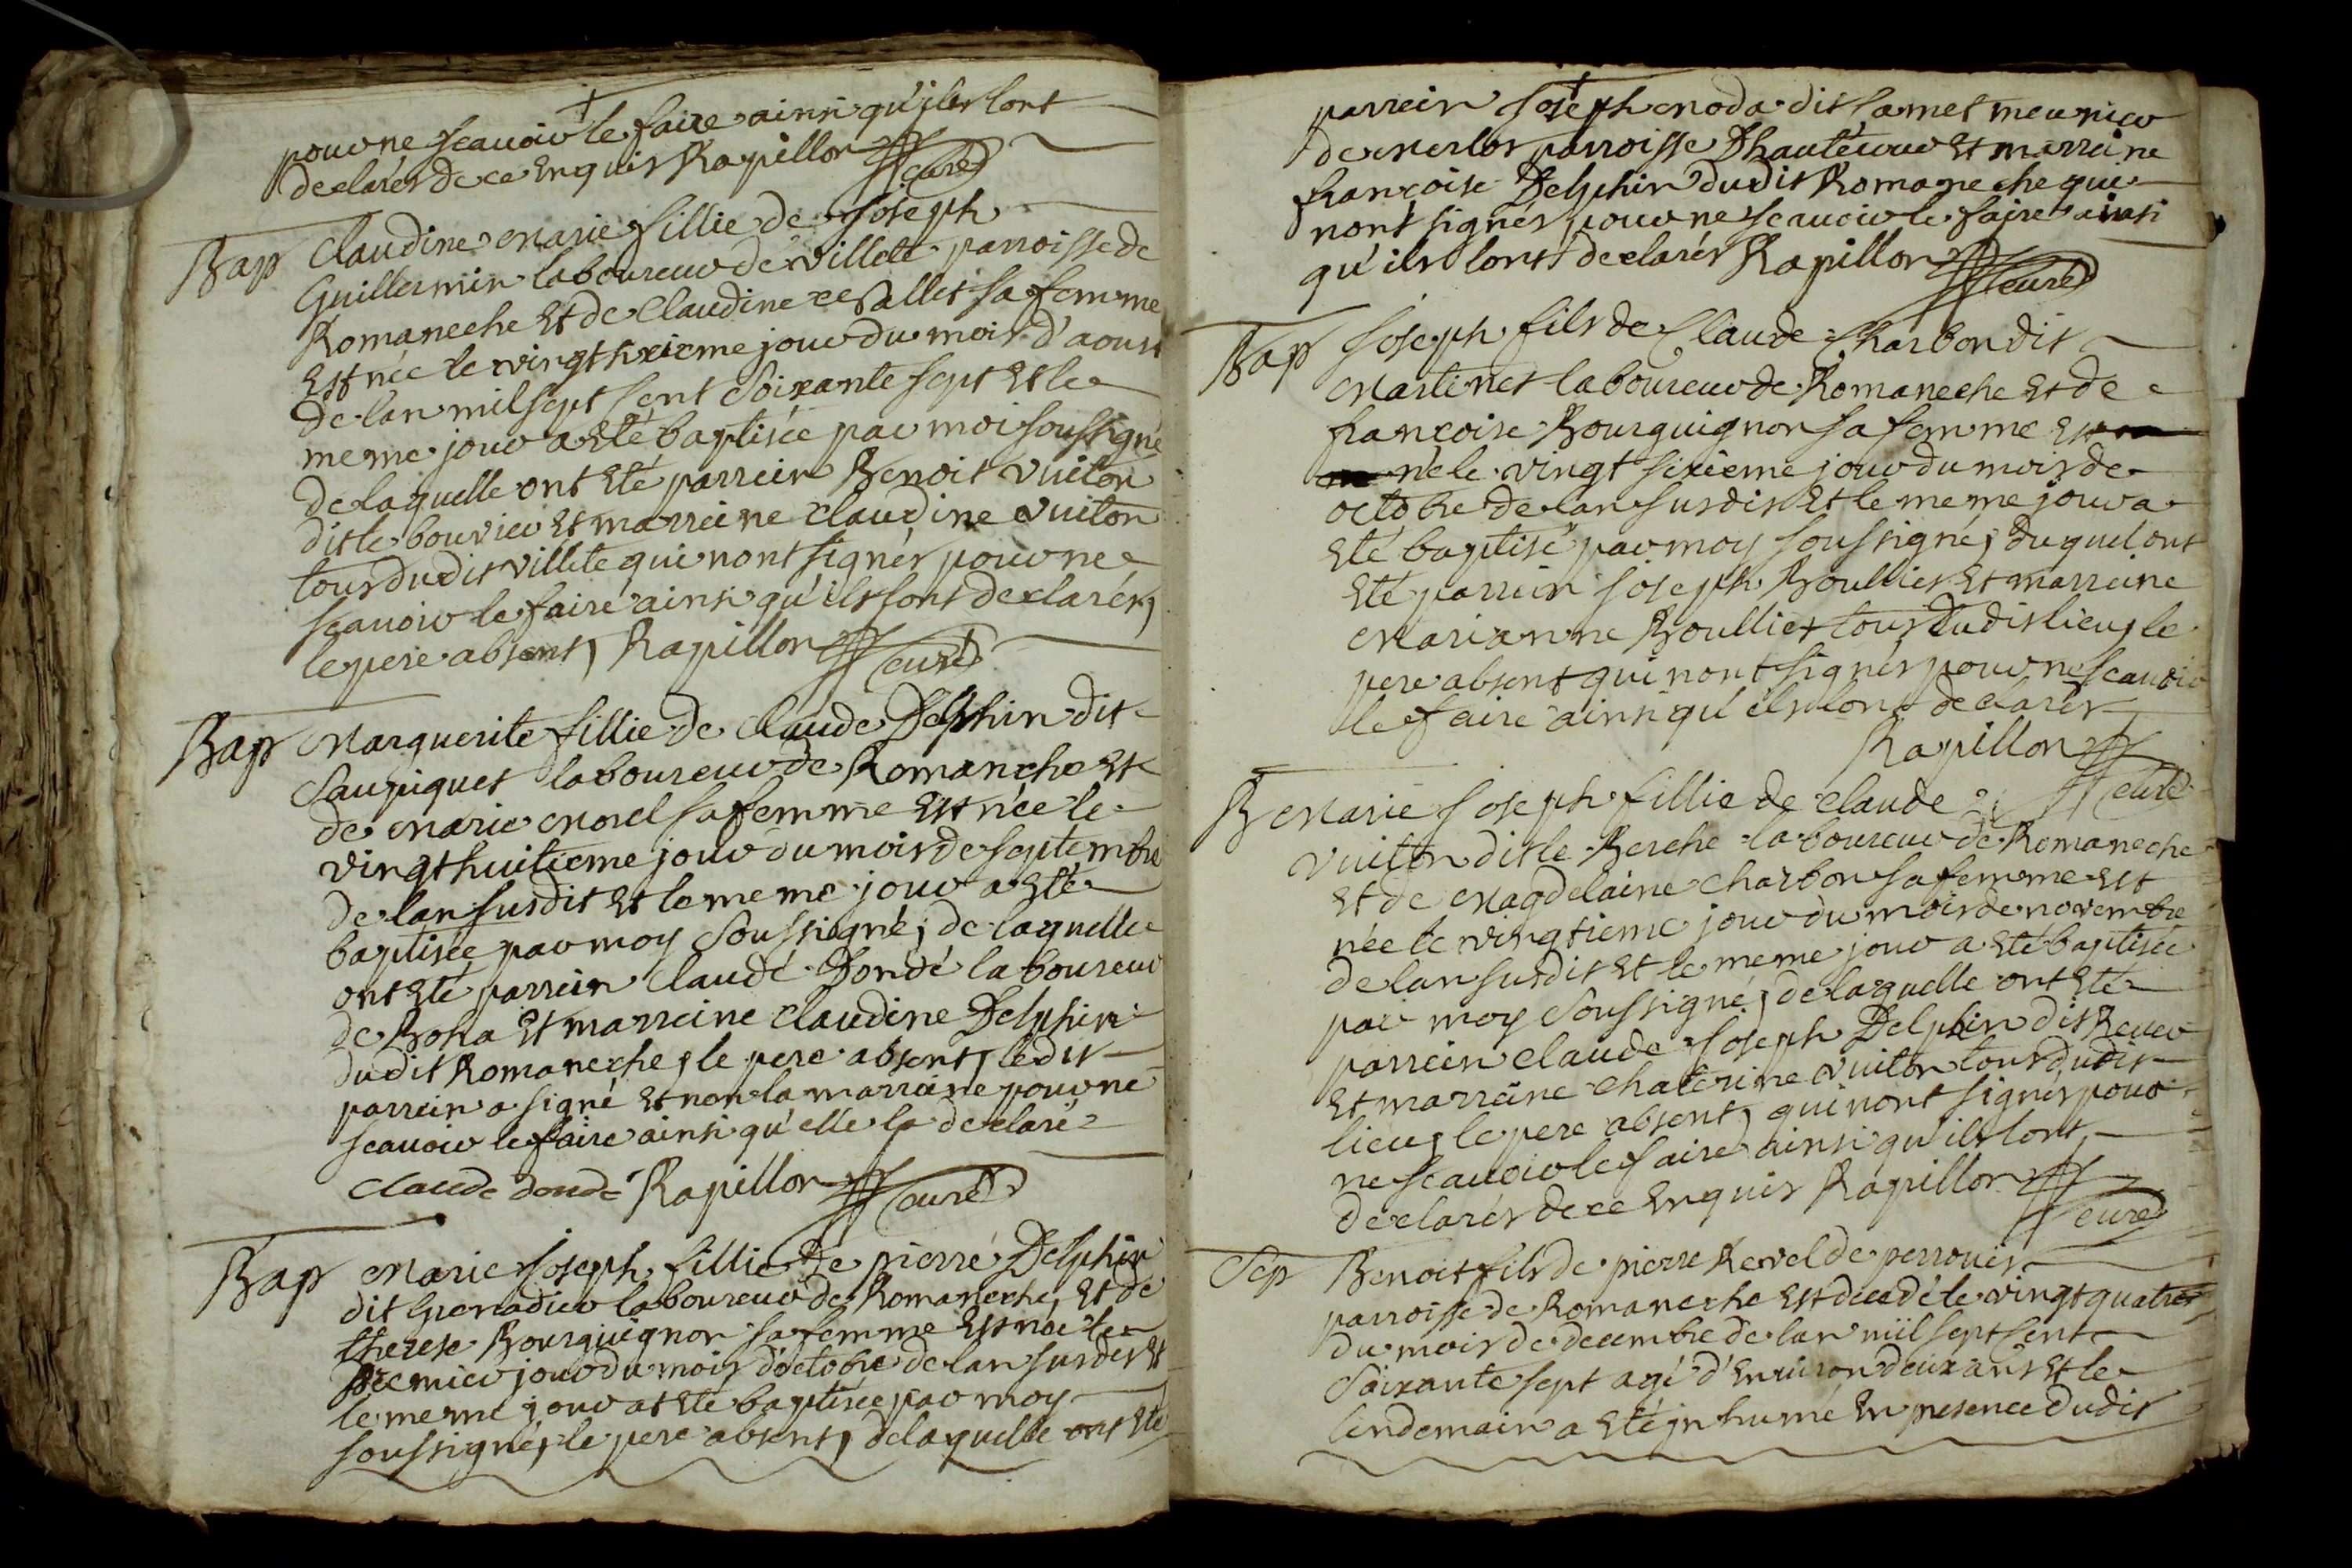 pour ne scavoir le faire ainsi qu'ils lont
declarés de ce Enquis Rapillon curé
Bap Claudine Marie fillie de Joseph
Guillermin laboureur de villete parroisse de
Romaneche Et de Claudine sa femme
Est née le vingt sixieme jour du mois d'aoust
de lan mil sept sent soixante sept Et le
meme jour a Eté baptisée par moi soussigné
de laquelle ont Eté parrein Benoit vuiton
dit le bouvier Et marreine Claudine vuiton
tous dudit villete qui nont signés pour ne
scavoir le faire ainsi qu'ils lont declarés,
le pere absent, Rapillon curé
Bap Marguerite fillie de Claude Delphin dit
Saupiquet laboureur de Romaneche Et
de Marie Morel sa femme Est née le
vingt huitieme jour du mois de septembre
de lan susdit Et le meme jour a Eté
baptisée par moy soussigné, de laquelle
ont Eté parrein Claude Dondé laboureur
de Boha Et marreine Claudine Delphin
dudit Romaneche, le pere absent, ledit
parrein a signé Et non la marreine pour ne
scavoir le faire ainsi qu'elle la declaré
Claude dondé Rapillon curé
Bap Marie Joseph fillie de pierre Delphin
dit Grenadier laboureur de Romaneche, Et de
therese Bourguignon sa femme Est née le
premier jour du mois d'octobre de lan susdit Et
le meme jour at Eté baptisée par moy
soussigné, le pere absent, de laquelle ont Eté
parrein Joseph Moda dit Jamet meunier
de Merlos parroisse Dhautecour Et marreine
francoise Delphin dudit Romaneche qui
nont signés, pour ne scavoir le faire ainsi
qu'ils lont declarés Rapillon curé
Bap Joseph fils de Claude Charbon dit
Martinet laboureur de Romaneche Et de
francoise Bourguignon sa femme Est
né le vingt sixieme jour du mois de
octobre de lan susdit Et le meme jour a
Eté baptisé par moy soussigné, duquel ont
Eté parrein Joseph Boullier Et marreine
Marianne Boullier tous dudit lieu, le
pere absent qui nont signés pour ne scavoir
le faire ainsi qu'ils lont declarés
Rapillon curé
B Marie Joseph fillie de Claude
vuiton dit le Berche laboureur de Romaneche
Et de Magdelaine Charbon sa femme est
née le vingtieme jour du mois de novembre
de lan susdit Et le meme jour a Eté baptisée
par moy soussigné, de laquelle ont Eté
parrein Claude Joseph Delphin dit
Et marreine Chaterine vuiton tous dudit
lieu, le pere absent, qui nont signés pour
ne scavoir le faire ainsi qu'ils lont
declarés de ce Enquis Rapillon curé
Sep Benoit fils de pierre Revel de perrouis
parroisse de Romaneche Est decedé le vingt quatre
du mois de decembre de lan mil sept sent
Soixante sept agé d'Environ deux ans Et le
lendemain a Eté jnhumé En presence dudit